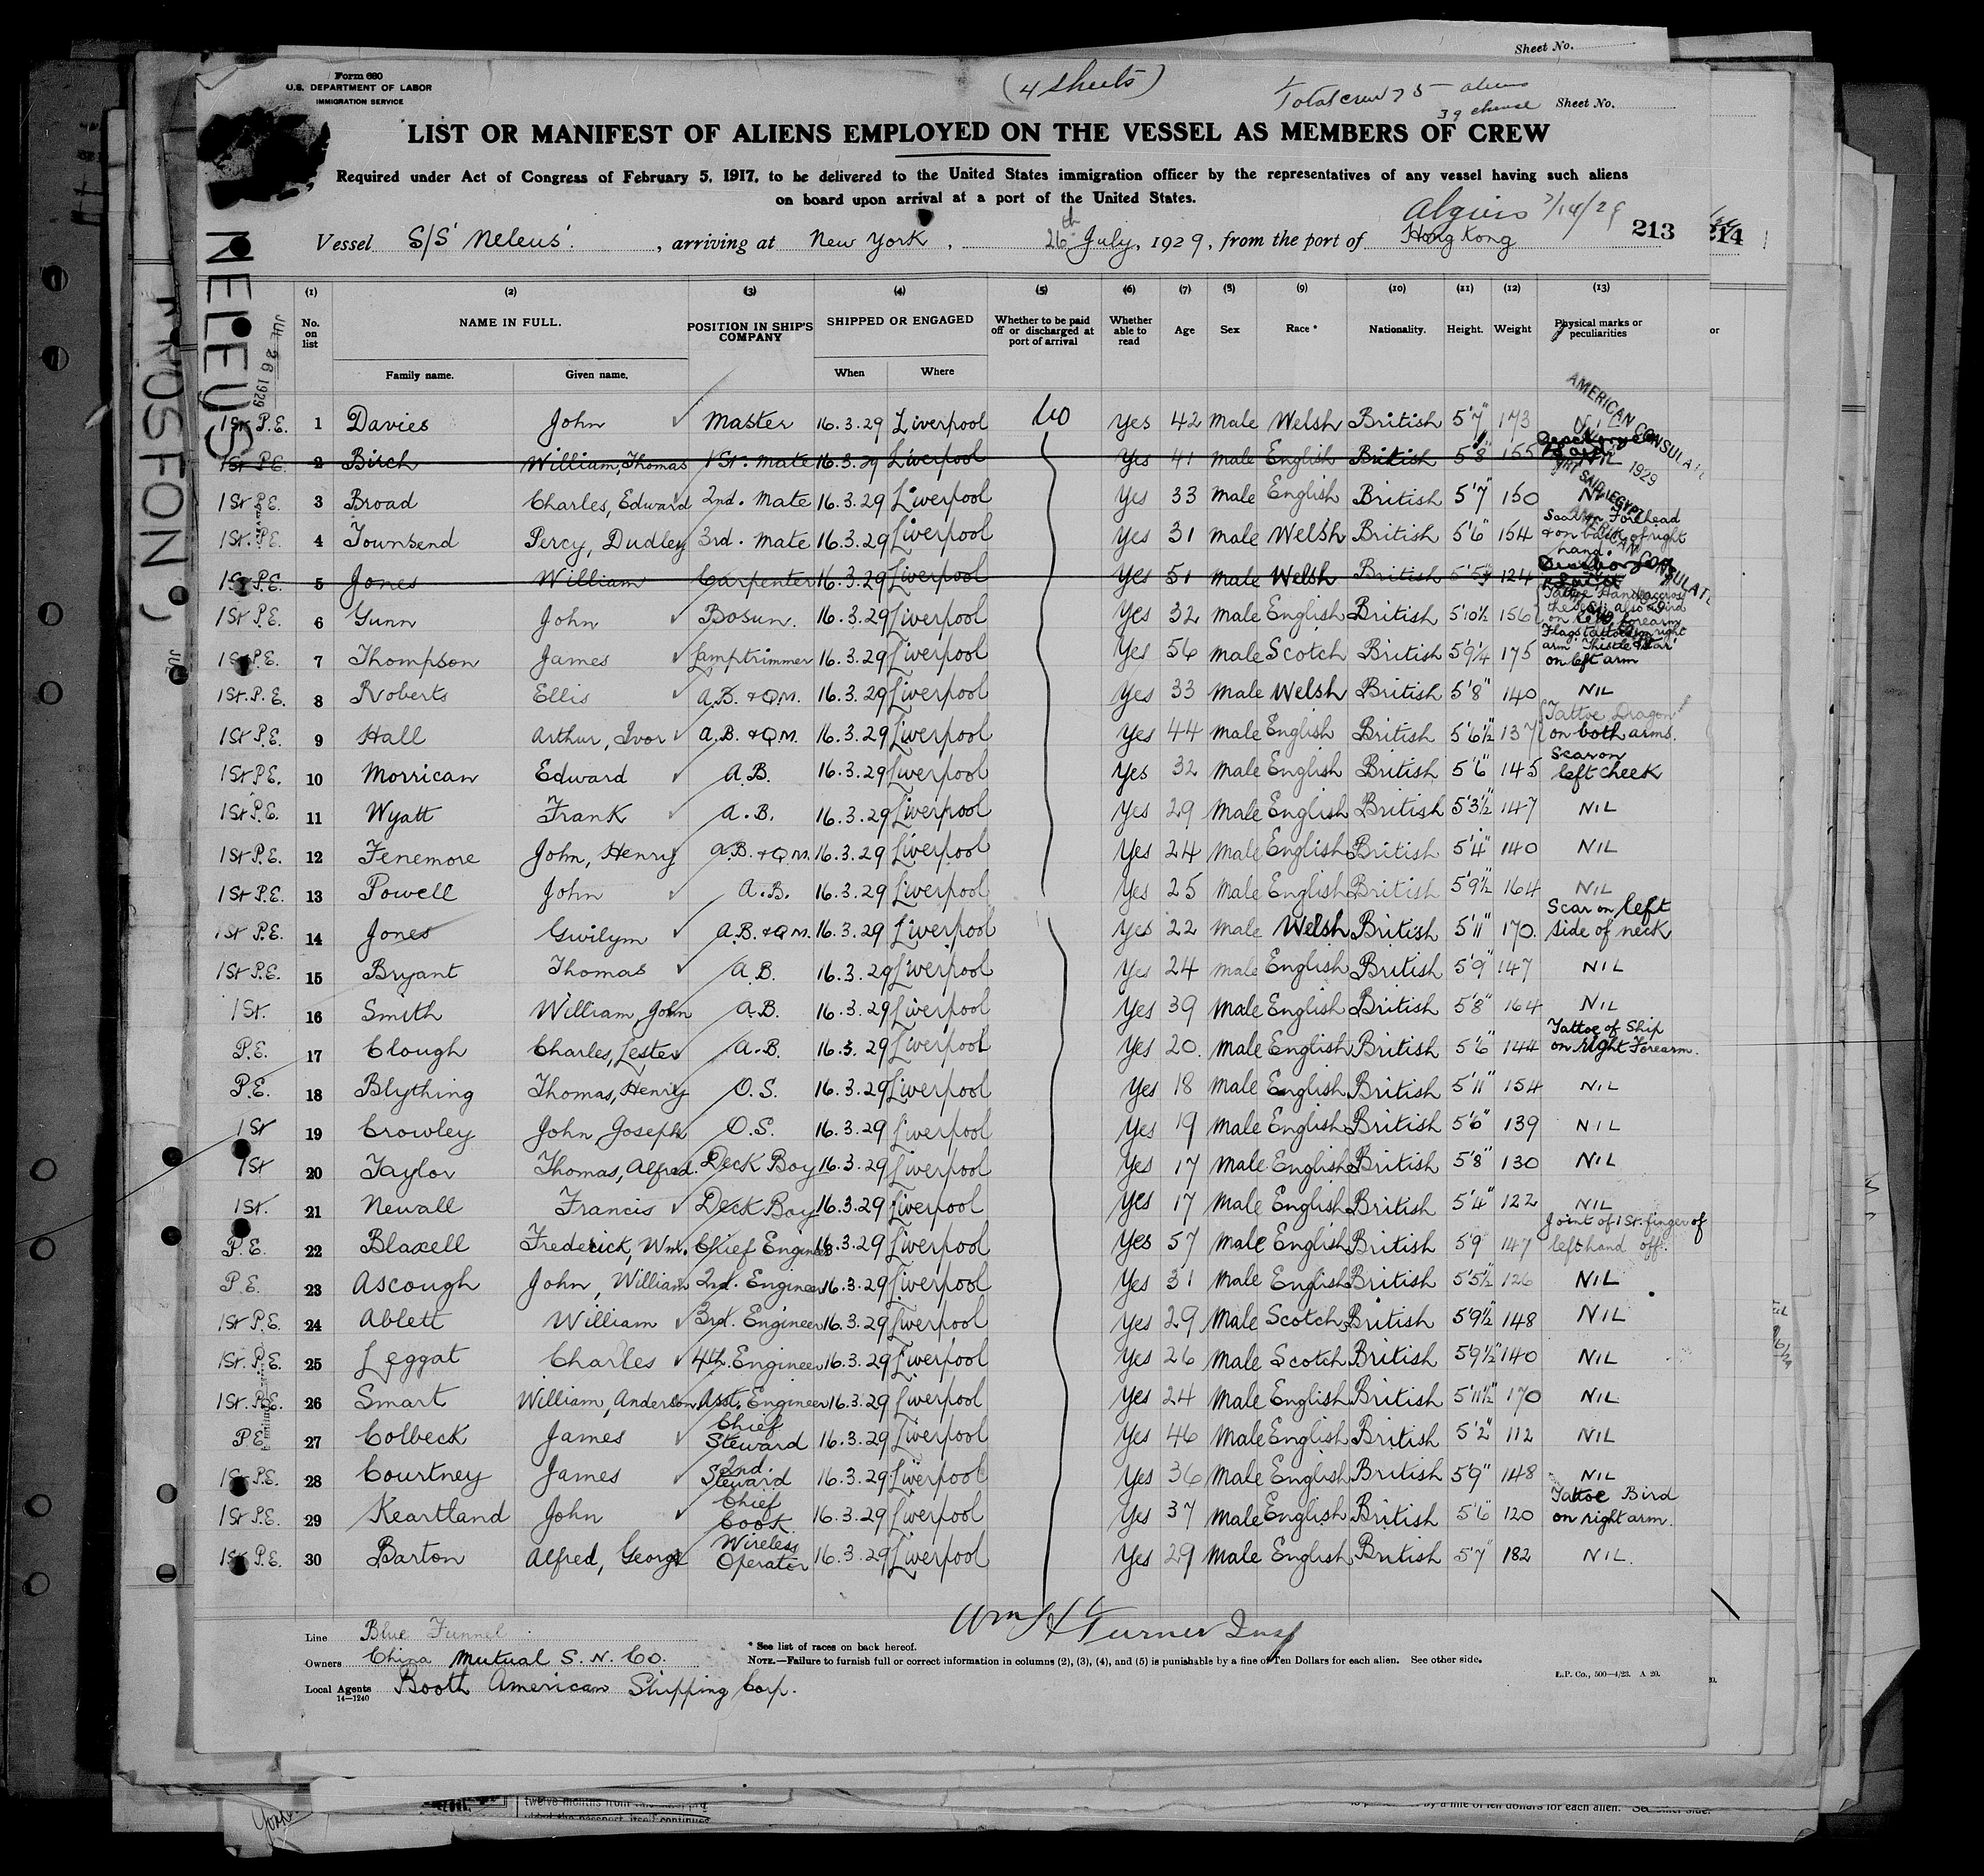 Sheet No.
Form 680
U.S. DEPARTMENT OF LABOR
IMMIGRATION SERVICE
(4 sheets)
Total crew 75 aliens
39 chinese
Sheet No.
LIST OR MANIFEST OF ALIENS EMPLOYED ON THE VESSEL AS MEMBERS OF CREW
Required under Act of Congress of February 5, 1917, to be delivered to the United States immigration officer by the representatives of any vessel having such aliens
on board upon arrival at a port of the United States.
Algiers 7/14/29
Vessel S/S 'Neleus'., arriving at New York, 26th July, 1929, from the port of Hong Kong 213
214
NELEUS
JUL 26 1929
(1) (2) (3) (4) (5) (6) (7) (8) (9) (10) (11) (12) (13)
No. on list NAME IN FULL. POSITION IN SHIP'S COMPANY SHIPPED OR ENGAGED Whether to be paid off or discharged at port of arrival Whether able to read Age Sex Race * Nationality. Height. Weight Physical marks or peculiarities
Family name. Given name. When Where
AMERICAN CONSULATE
PORT SAID, EGYPT
1929
1St P.E. 1 Davies John Master 16.3.29 Liverpool No Yes 42 Male Welsh British 5'7" 173 NIL
1St P.E. 2 Birch William, Thomas 1St. Mate 16.3.29 Liverpool Yes 41 Male English British 5'8" 155 NIL
1St P.E. 3 Broad Charles, Edward 2nd. Mate 16.3.29 Liverpool Yes 33 Male English British 5'7" 150 NIL
1St. P.E. 4 Townsend Percy, Dudley 3rd. Mate 16.3.29 Liverpool Yes 31 Male Welsh British 5'6" 154 Scar on Forehead & on back of right hand.
1St P.E. 5 Jones William Carpenter 16.3.29 Liverpool Yes 51 Male Welsh British 124
1St P.E. 6 Gunn John Bosun. 16.3.29 Liverpool Yes 32 Male English British 5'10½ 156
1St P.E. 7 Thompson James Lamptrimmer 16.3.29 Liverpool Yes 56 Male Scotch British 5'9¼ 175 Flags tattoe on right arm Thistle & Star on left arm
1St. P.E. 8 Roberts Ellis A.B. & Q.M. 16.3.29 Liverpool Yes 33 Male Welsh British 5'8" 140 NIL
1St P.E. 9 Hall Arthur, Ivor A.B. & Q.M. 16.3.29 Liverpool Yes 44 Male English British 5'6½" 137 Tattoe Dragon on both arms.
1St P.E. 10 Morrican Edward A.B. 16.3.29 Liverpool Yes 32 Male English British 5'6" 145 Scar on left cheek
1St P.E. 11 Wyatt Frank A.B. 16.3.29 Liverpool Yes 29 Male English British 5'3½" 147 NIL
1St P.E. 12 Fenemore John, Henry A.B. & Q.M. 16.3.29 Liverpool Yes 24 Male English British 5'4" 140 NIL
1St P.E. 13 Powell John A.B. 16.3.29 Liverpool Yes 25 Male English British 5'9½" 164 NIL
1St P.E. 14 Jones Gwilym A.B. & Q.M. 16.3.29 Liverpool Yes 22 Male Welsh British 5'11" 170. Scar on left side of neck
1St P.E. 15 Bryant Thomas A.B. 16.3.29 Liverpool Yes 24 Male English British 5'9" 147 NIL
1St. 16 Smith William, John A.B. 16.3.29 Liverpool Yes 39 Male English British 5'8" 164 NIL
P.E. 17 Clough Charles, Lester A.B. 16.3.29 Liverpool Yes 20. Male English British 5'6" 144 Tattoe of Ship on right Forearm.
P.E. 18 Blything Thomas, Henry O.S. 16.3.29 Liverpool Yes 18 Male English British 5'11" 154 NIL
1St 19 Crowley John, Joseph O.S. 16.3.29 Liverpool Yes 19 Male English British 5'6" 139 NIL
1St 20 Taylor Thomas, Alfred. Deck Boy 16.3.29 Liverpool Yes 17 Male English British 5'8" 130 NIL
1St. 21 Newall Francis Deck Boy 16.3.29 Liverpool Yes 17 Male English British 5'4" 122 NIL
P.E. 22 Blaxell Frederick, Wm. Chief Engineer 16.3.29 Liverpool Yes 57 Male English British 5'9 147 Joint of 1St. finger of left hand off.
P.E. 23 Ascough John, William 2nd. Engineer 16.3.29 Liverpool Yes 31 Male English British 5'5½" 126 NIL
1St P.E. 24 Ablett William 3rd. Engineer 16.3.29 Liverpool Yes 29 Male Scotch British 5'9½" 148 NIL
1St. P.E. 25 Leggat Charles 4th. Engineer 16.3.29 Liverpool Yes 26 Male Scotch British 5'9½" 140 NIL
1St. P.E. 26 Smart William, Anderson Asst. Engineer 16.3.29 Liverpool Yes 24 Male English British 5'11½" 170 NIL
P.E. 27 Colbeck James Chief Steward 16.3.29 Liverpool Yes 46 Male English British 5'2" 112 NIL
1St P.E. 28 Courtney James 2nd. Steward 16.3.29 Liverpool Yes 36 Male English British 5'9" 148 NIL
1St P.E. 29 Keartland John Chief Cook. 16.3.29 Liverpool Yes 37 Male English British 5'6" 120 Tattoe Bird on right arm.
1St P.E. 30 Barton Alfred, George Wireless Operator 16.3.29 Liverpool Yes 29 Male English British 5'7" 182 NIL.
Wm H Turner Insp
Line Blue Funnel
Owners China Mutual S. N. Co.
Local Agents Booth American Shipping Corp.
14—1240
* See list of races on back hereof.
NOTE.—Failure to furnish full or correct information in columns (2), (3), (4), and (5) is punishable by a fine of Ten Dollars for each alien. See other side.
L.P. Co., 500—4/23. A 20.
twelve months from
by a fine of ten dollars for each alien.